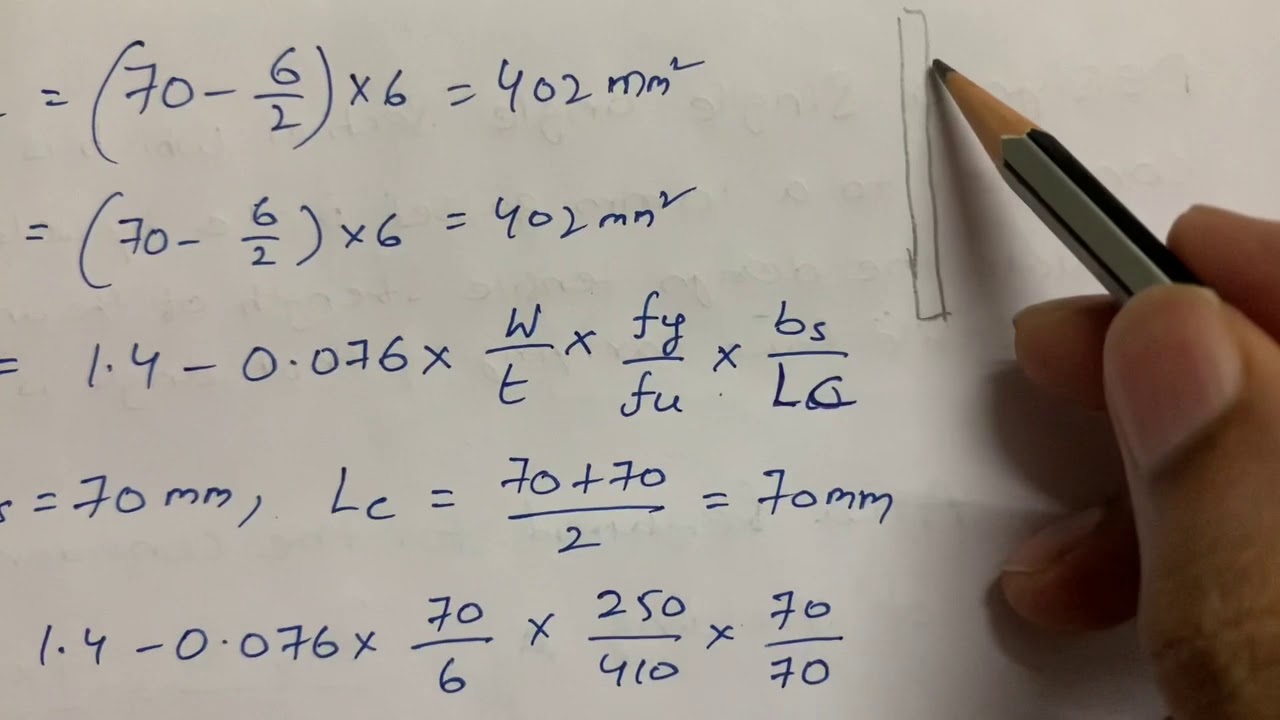 = (70 - 6/2) × 6 = 402 mm²
= (70 - 6/2) × 6 = 402 mm²
= 1.4 - 0.076 × W/t × fy/fu × bs/Lc
s = 70 mm, Lc = (70+70)/2 = 70mm
1.4 - 0.076 × 70/6 × 250/410 × 70/70